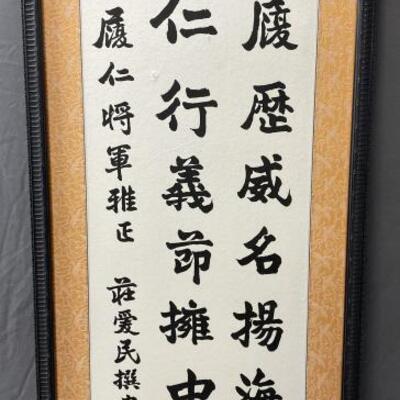 履歷威名揚海
仁行義節擁
履仁將軍雅正 莊愛民撰